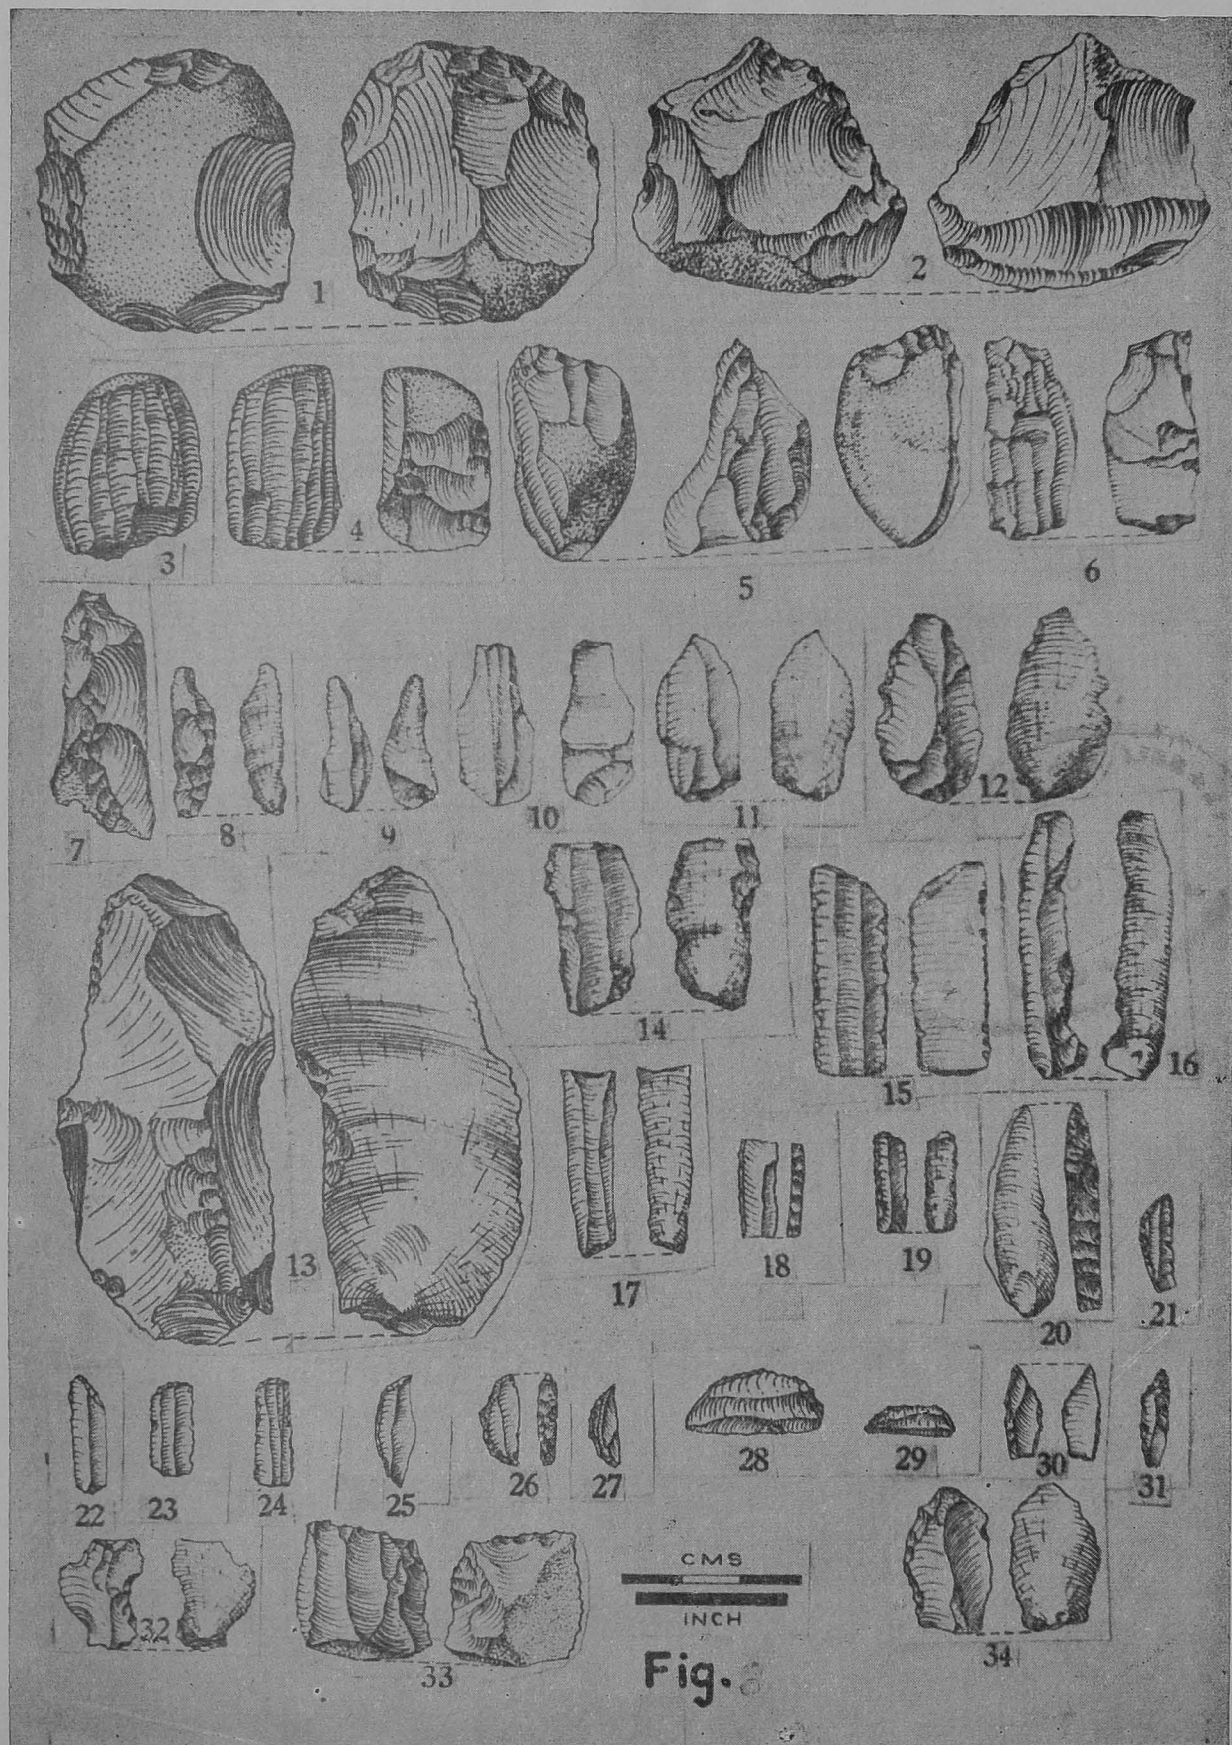 1
2
3
4
5
6
7
8
9
10
11
12
13
14
15
16
17
18
19
20
21
22
23
24
25
26
27
28
29
30
31
32
33
CMS
INCH
34
Fig.